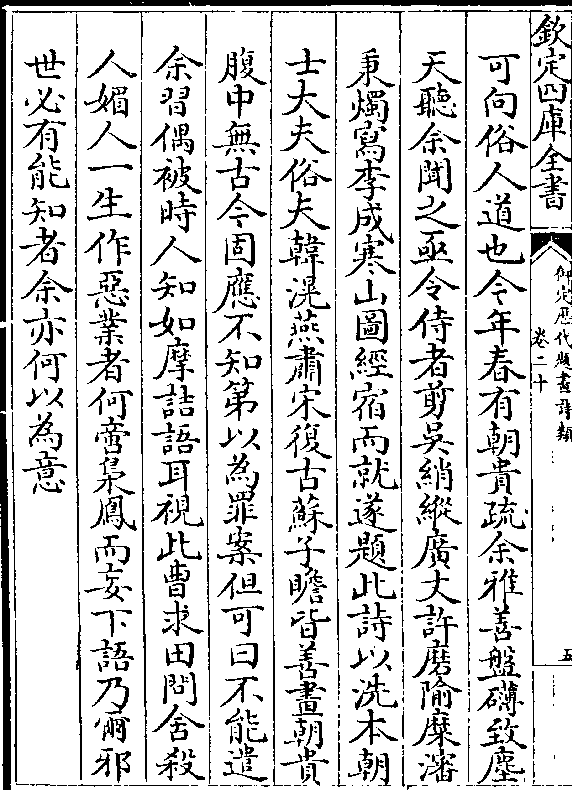 欽定四庫全書
御定歷代題畫詩類
卷二十
五
可向俗人道也今年春有朝貴疏余雅善盤礴致塵
天聽余聞之亟令侍者剪吳綃縱廣丈許磨隃糜瀋
秉燭寫李成寒山圖經宿而就遂題此詩以洗本朝
士大夫俗夫韓滉燕肅宋復古蘇子瞻皆善畫朝貴
腹中無古今固應不知第以為罪案但可曰不能遣
余習偶被時人知如摩詰語耳視此曹求田問舍殺
人媚人一生作惡業者何啻梟鳳而妄下語乃爾邪
世必有能知者余亦何以為意